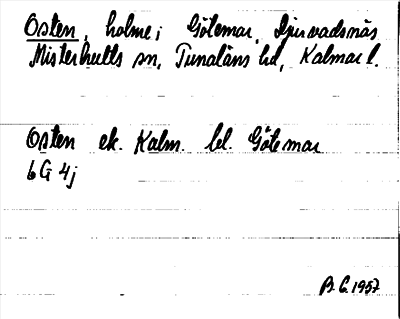 Osten, holme i Götemar, Djurvadsnäs
Misterhults sn, Tunaläns hd, Kalmar l.
Osten ek. Kalm. bl. Götemar
6G 4j
B.G. 1957